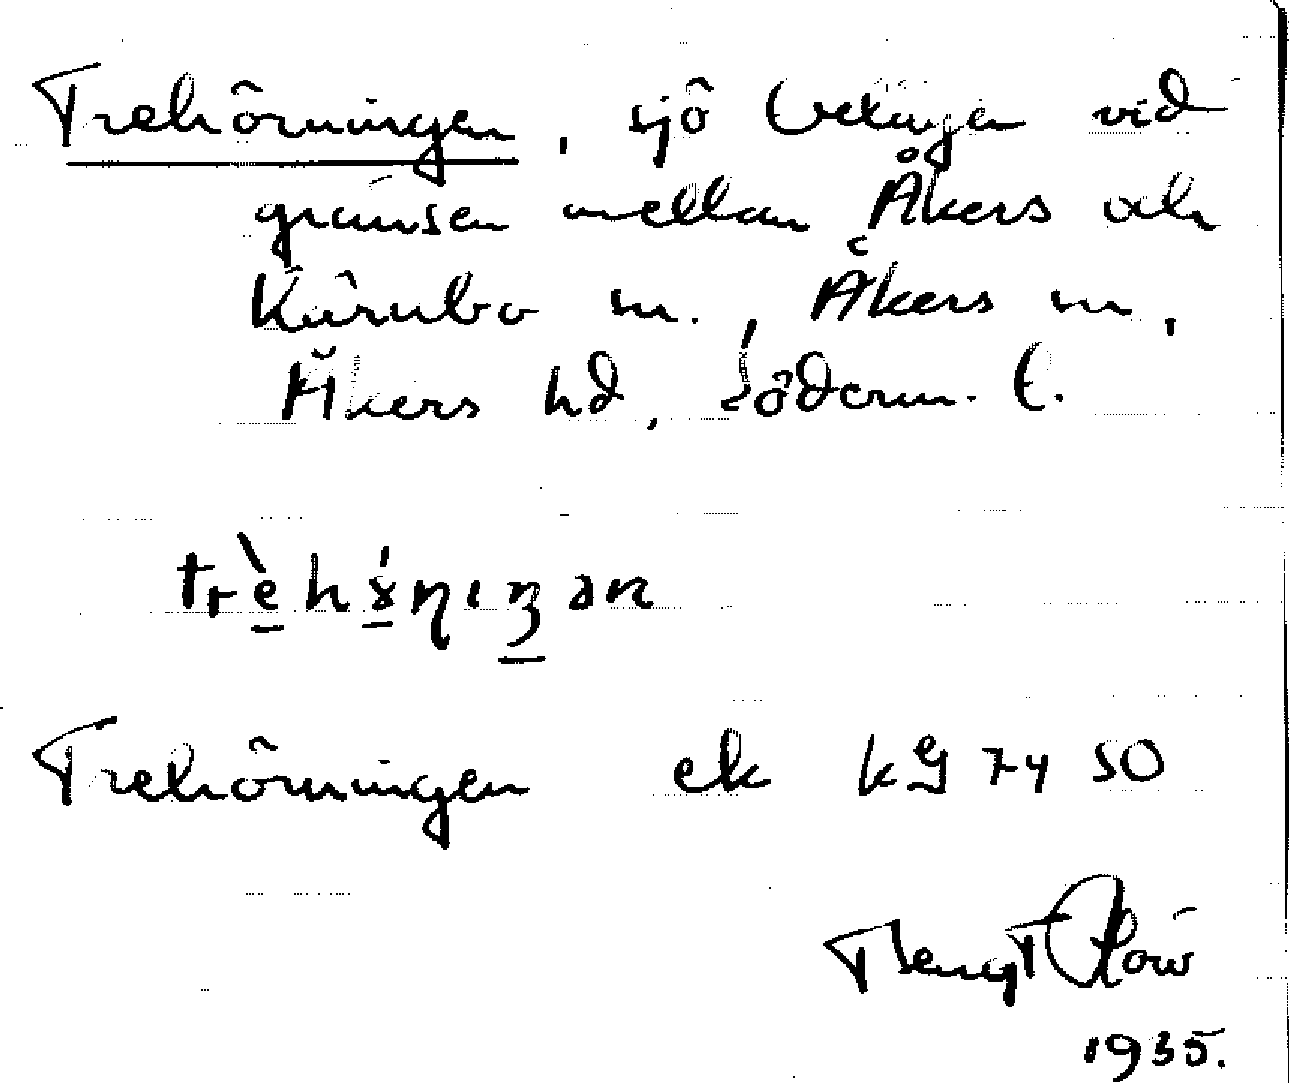 Trehörningen, sjö belägen vid
gränsen mellan Åkers och
Kärnbo sn., Åkers sn,
Åkers hd, Söderm. l.
Trehörningen ek kg 74 50
Bengt
1935.